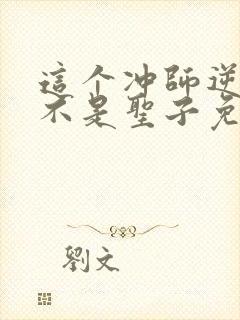 這个冲師逆
不是聖子免
劉文